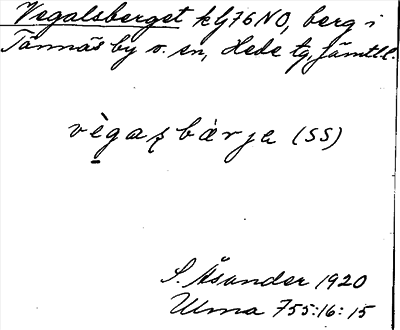 Vegalsberget kfj76NO, berg i
Tännäs by o. sn, Hede tg, Jämtl.l.
vègaʂbárja (SS)
S. Åsander 1920
Ulma 755:16:15